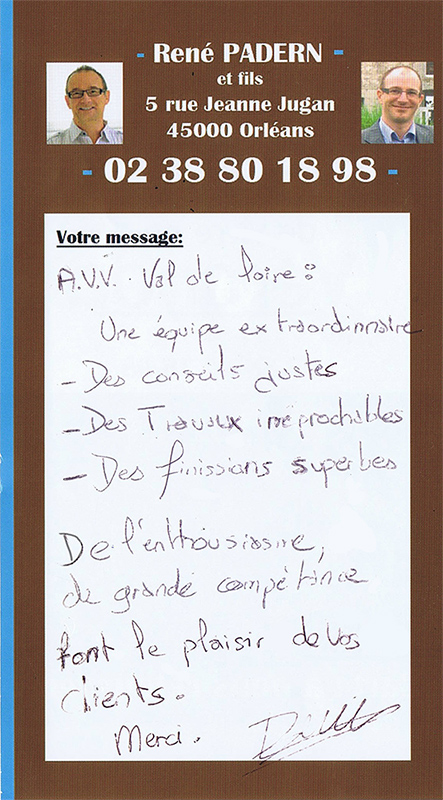 - René PADERN -
et fils
5 rue Jeanne Jugan
45000 Orléans
- 02 38 80 18 98 -
Votre message:
A.V.V. Val de Loire :
Une équipe extraordinnaire
- Des conseils justes
- Des Travaux irréprochables
- Des finissions superbes
De l'enthousiasme,
de grande compétence
font le plaisir de vos
clients.
Merci.